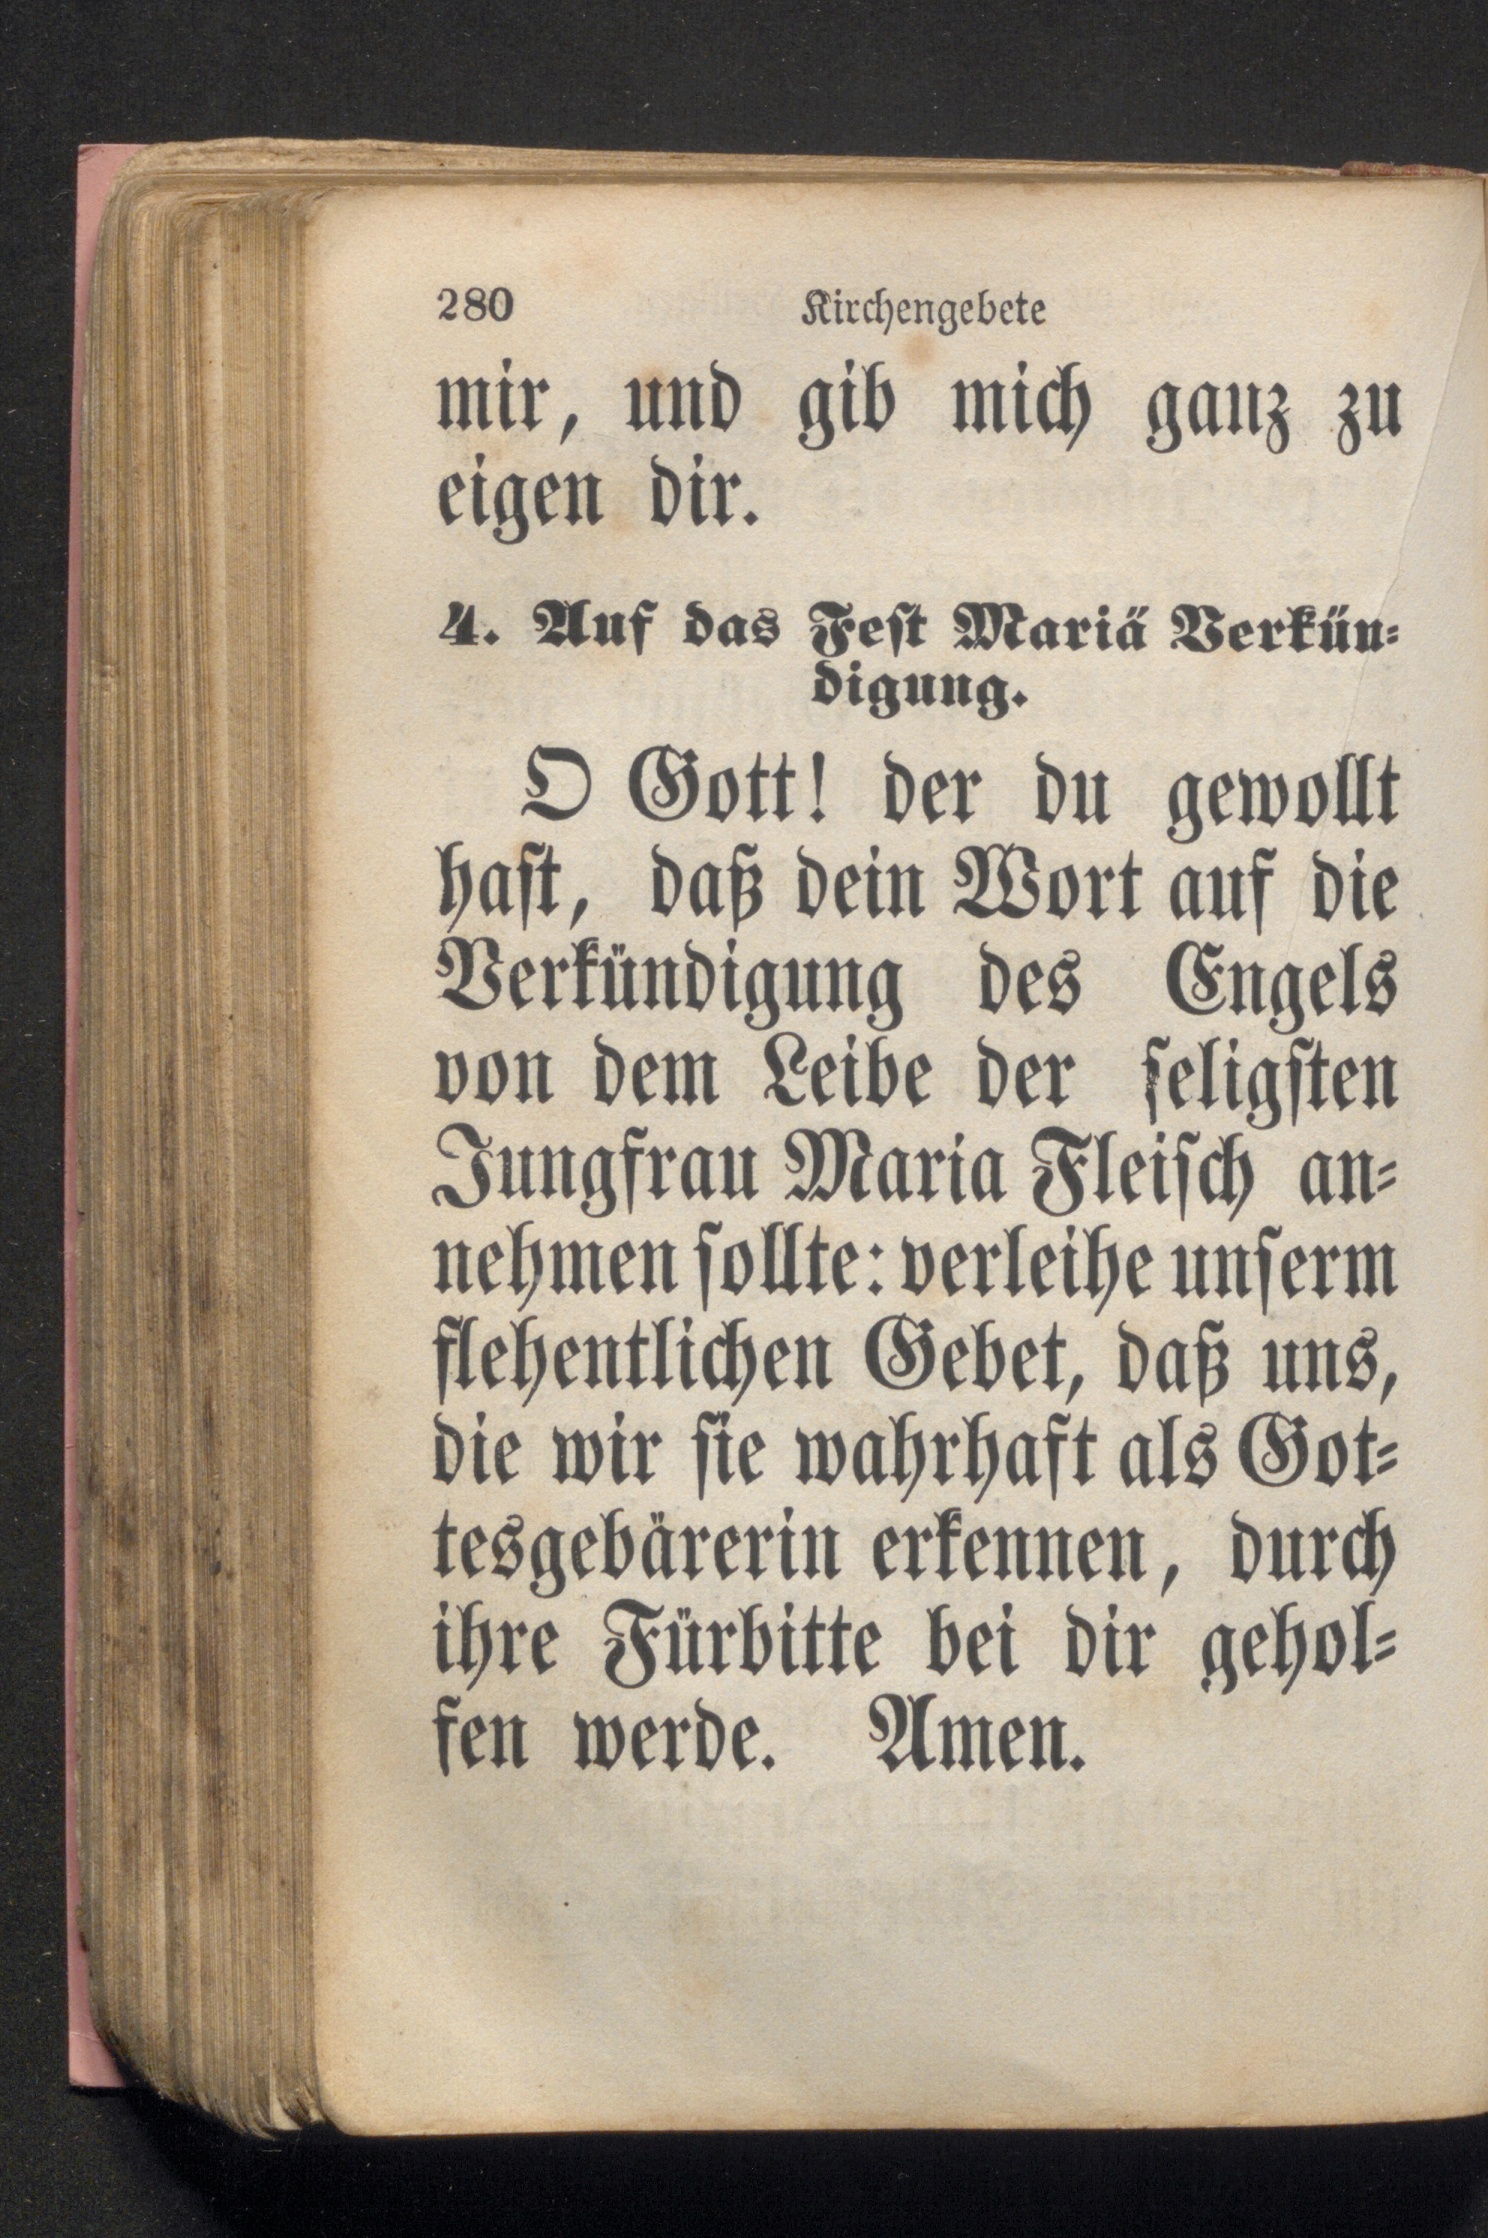 280 Kirchengebete
mir, und gib mich ganz zu
eigen dir.
4. Auf das Feſt Mariä Verkün⸗
digung.
O Gott! der du gewollt
haſt, daß dein Wort auf die
Verkündigung des Engels
von dem Leibe der ſeligſten
Jungfrau Maria Fleiſch an⸗
nehmen ſollte: verleihe unſerm
flehentlichen Gebet, daß uns,
die wir ſie wahrhaft als Got⸗
tesgebärerin erkennen, durch
ihre Fürbitte bei dir gehol⸗
fen werde. Amen.